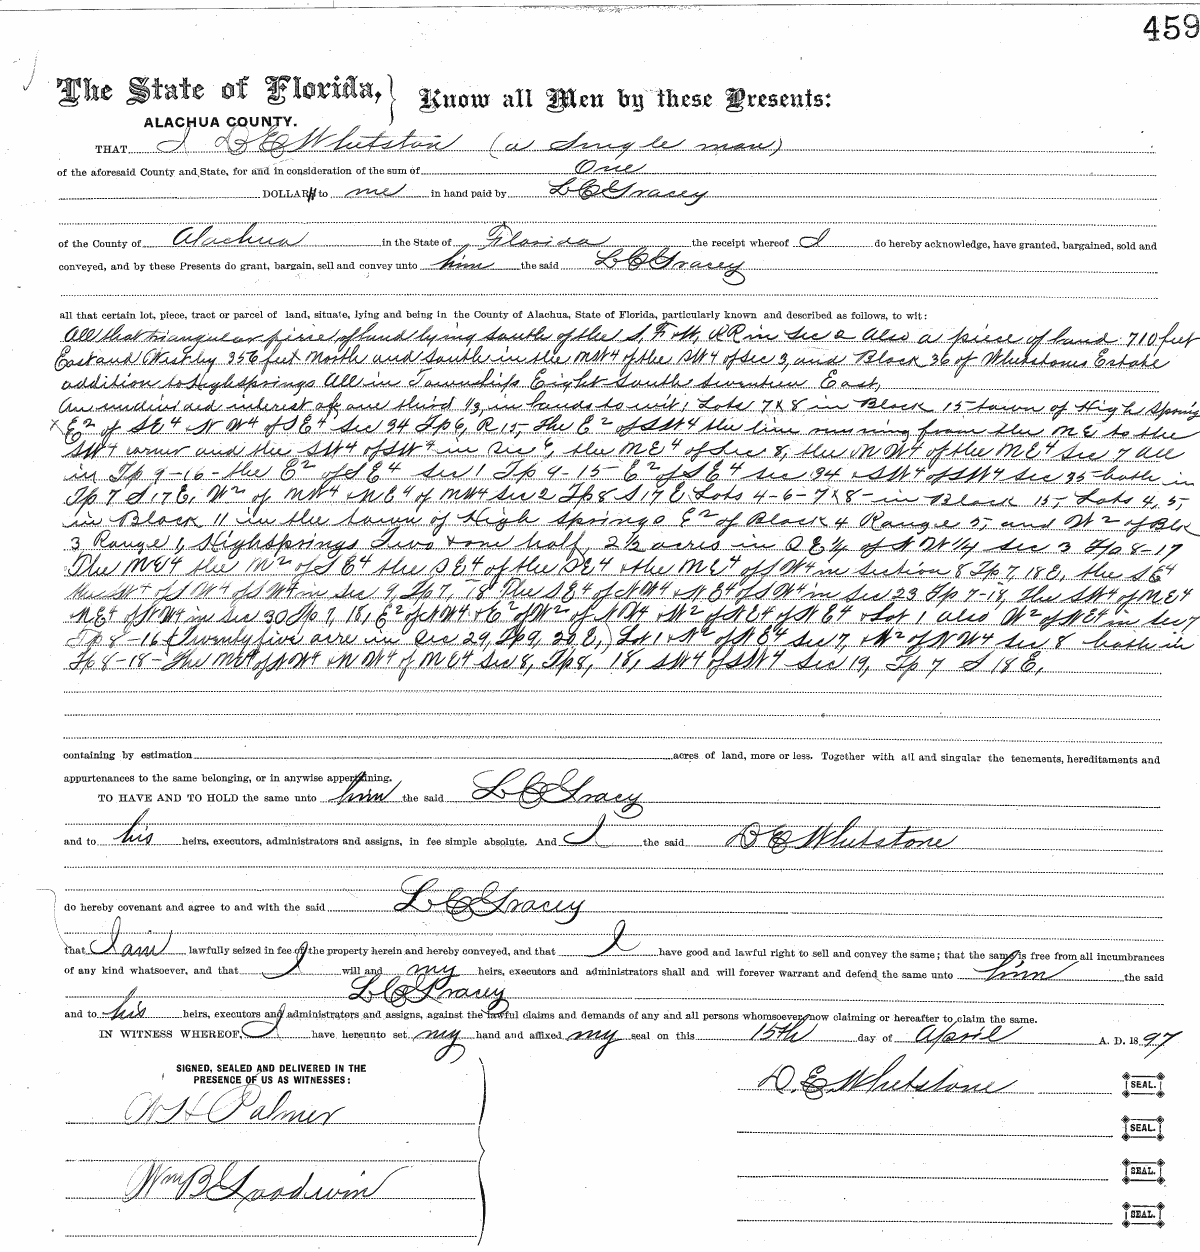 459
The State of Florida, } Know all Men by these Presents:
ALACHUA COUNTY.
THAT I D E Whetston (a single man)
of the aforesaid County and State, for and in consideration of the sum of One
DOLLAR to me in hand paid by L C Gracey
of the County of Alachua in the State of Florida the receipt whereof I do hereby acknowledge, have granted, bargained, sold and
conveyed, and by these Presents do grant, bargain, sell and convey unto him the said L C Gracey
all that certain lot, piece, tract or parcel of land, situate, lying and being in the County of Alachua, State of Florida, particularly known and described as follows, to wit:
All that triangular piece of land lying south of the S, F & W, RR in Sec 2 Also a piece of land 710 feet
East and West by 356 feet North and South in the NW4 of the SW4 of Sec 3, and Block 36 of Whetstones Estate
addition to High Springs All in Township Eight South Seventeen East,
An undivided interest of one third 1/3, in lands to wit; Lots 7 & 8 in Block 15 town of High Springs
X E2 of SE4 NW4 of SE4 Sec 34 Tp 6, R 15, The E2 of SW4 the line running from the NE to the
SW4 corner and the SW4 of SW4 in Sec 6, the NE4 of Sec 8, the NW4 of the NE4 Sec 7 all
in Tp 9-16- the E2 of SE4 Sec 1 Tp 9-15- E2 of SE4 Sec 34 & SW4 of SW4 Sec 35 both in
Tp 7 S 17 E, W2 of NW4 & NE4 of NW4 Sec 2 Tp 8 S 17 E Lots 4-6-7 & 8- in Block 15, Lots 4, 5,
in Block 11 in the town of High Springs E2 of Block 4 Range 5, and W2 of Blk
3 Range 1, High Springs Two & one half, 2 1/2 acres in SE 1/4 of NW 1/4 Sec 3 Tp 8-17
The NE 1/4 the of SE4 the SE4 of the SE4 & the NE4 of SW4 in Section 8 Tp 7, 18 E, the SE4
of SW4 in Sec 9, Tp 7, 18 The SE4 of NW4 & NE4 of SW4 in Sec 23 Tp 7-18, The SW4 of NE4
& NE4 of NW4 in Sec 30 Tp 7, 18, E2 of NW4 & E2 of W2 of NW4 & W2 of NE4 of NE4 & Lot 1 also W2 of NE4 in Sec 7
Tp 8-16 (Twenty five acre in Sec 29, Tp 9, 20 E,) Lot 1 & N2 of NE4 Sec 7, & N2 of NW4 Sec 8 both in
Tp 8-18- The NE4 of NW4 & NW4 of NE4 Sec 8, Tp 8, 18, SW4 of SW4 Sec 19, Tp 7 S 18 E,
containing by estimation acres of land, more or less. Together with all and singular the tenements, hereditaments and
appurtenances to the same belonging, or in anywise appertaining.
TO HAVE AND TO HOLD the same unto him the said L C Gracy
and to his heirs, executors, administrators and assigns, in fee simple absolute. And I the said D E Whetstone
do hereby covenant and agree to and with the said L C Gracey
that I am lawfully seized in fee of the property herein and hereby conveyed, and that I have good and lawful right to sell and convey the same; that the same is free from all incumbrances
of any kind whatsoever, and that I will and my heirs, executors and administrators shall and will forever warrant and defend the same unto him the said
L C Gracey
and to his heirs, executors and administrators and assigns, against the lawful claims and demands of any and all persons whomsoever, now claiming or hereafter to claim the same.
IN WITNESS WHEREOF, I have hereunto set my hand and affixed my seal on this 15th day of April A. D. 1897
SIGNED, SEALED AND DELIVERED IN THE
PRESENCE OF US AS WITNESSES:
D. E. Whetstone SEAL.
W H Palmer
SEAL.
Wm B Goodwin
SEAL.
SEAL.